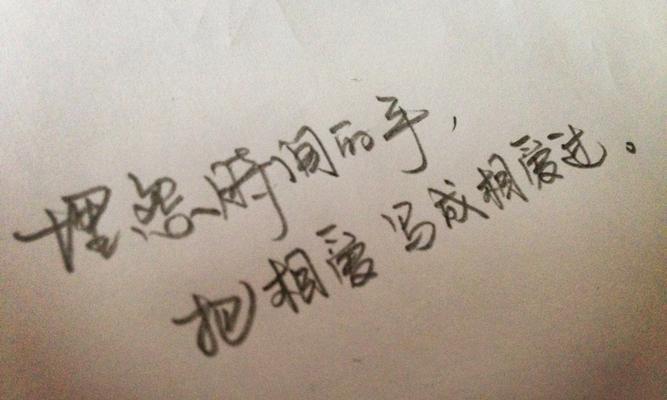 埋怨时间的手，
把相爱写成相爱过。